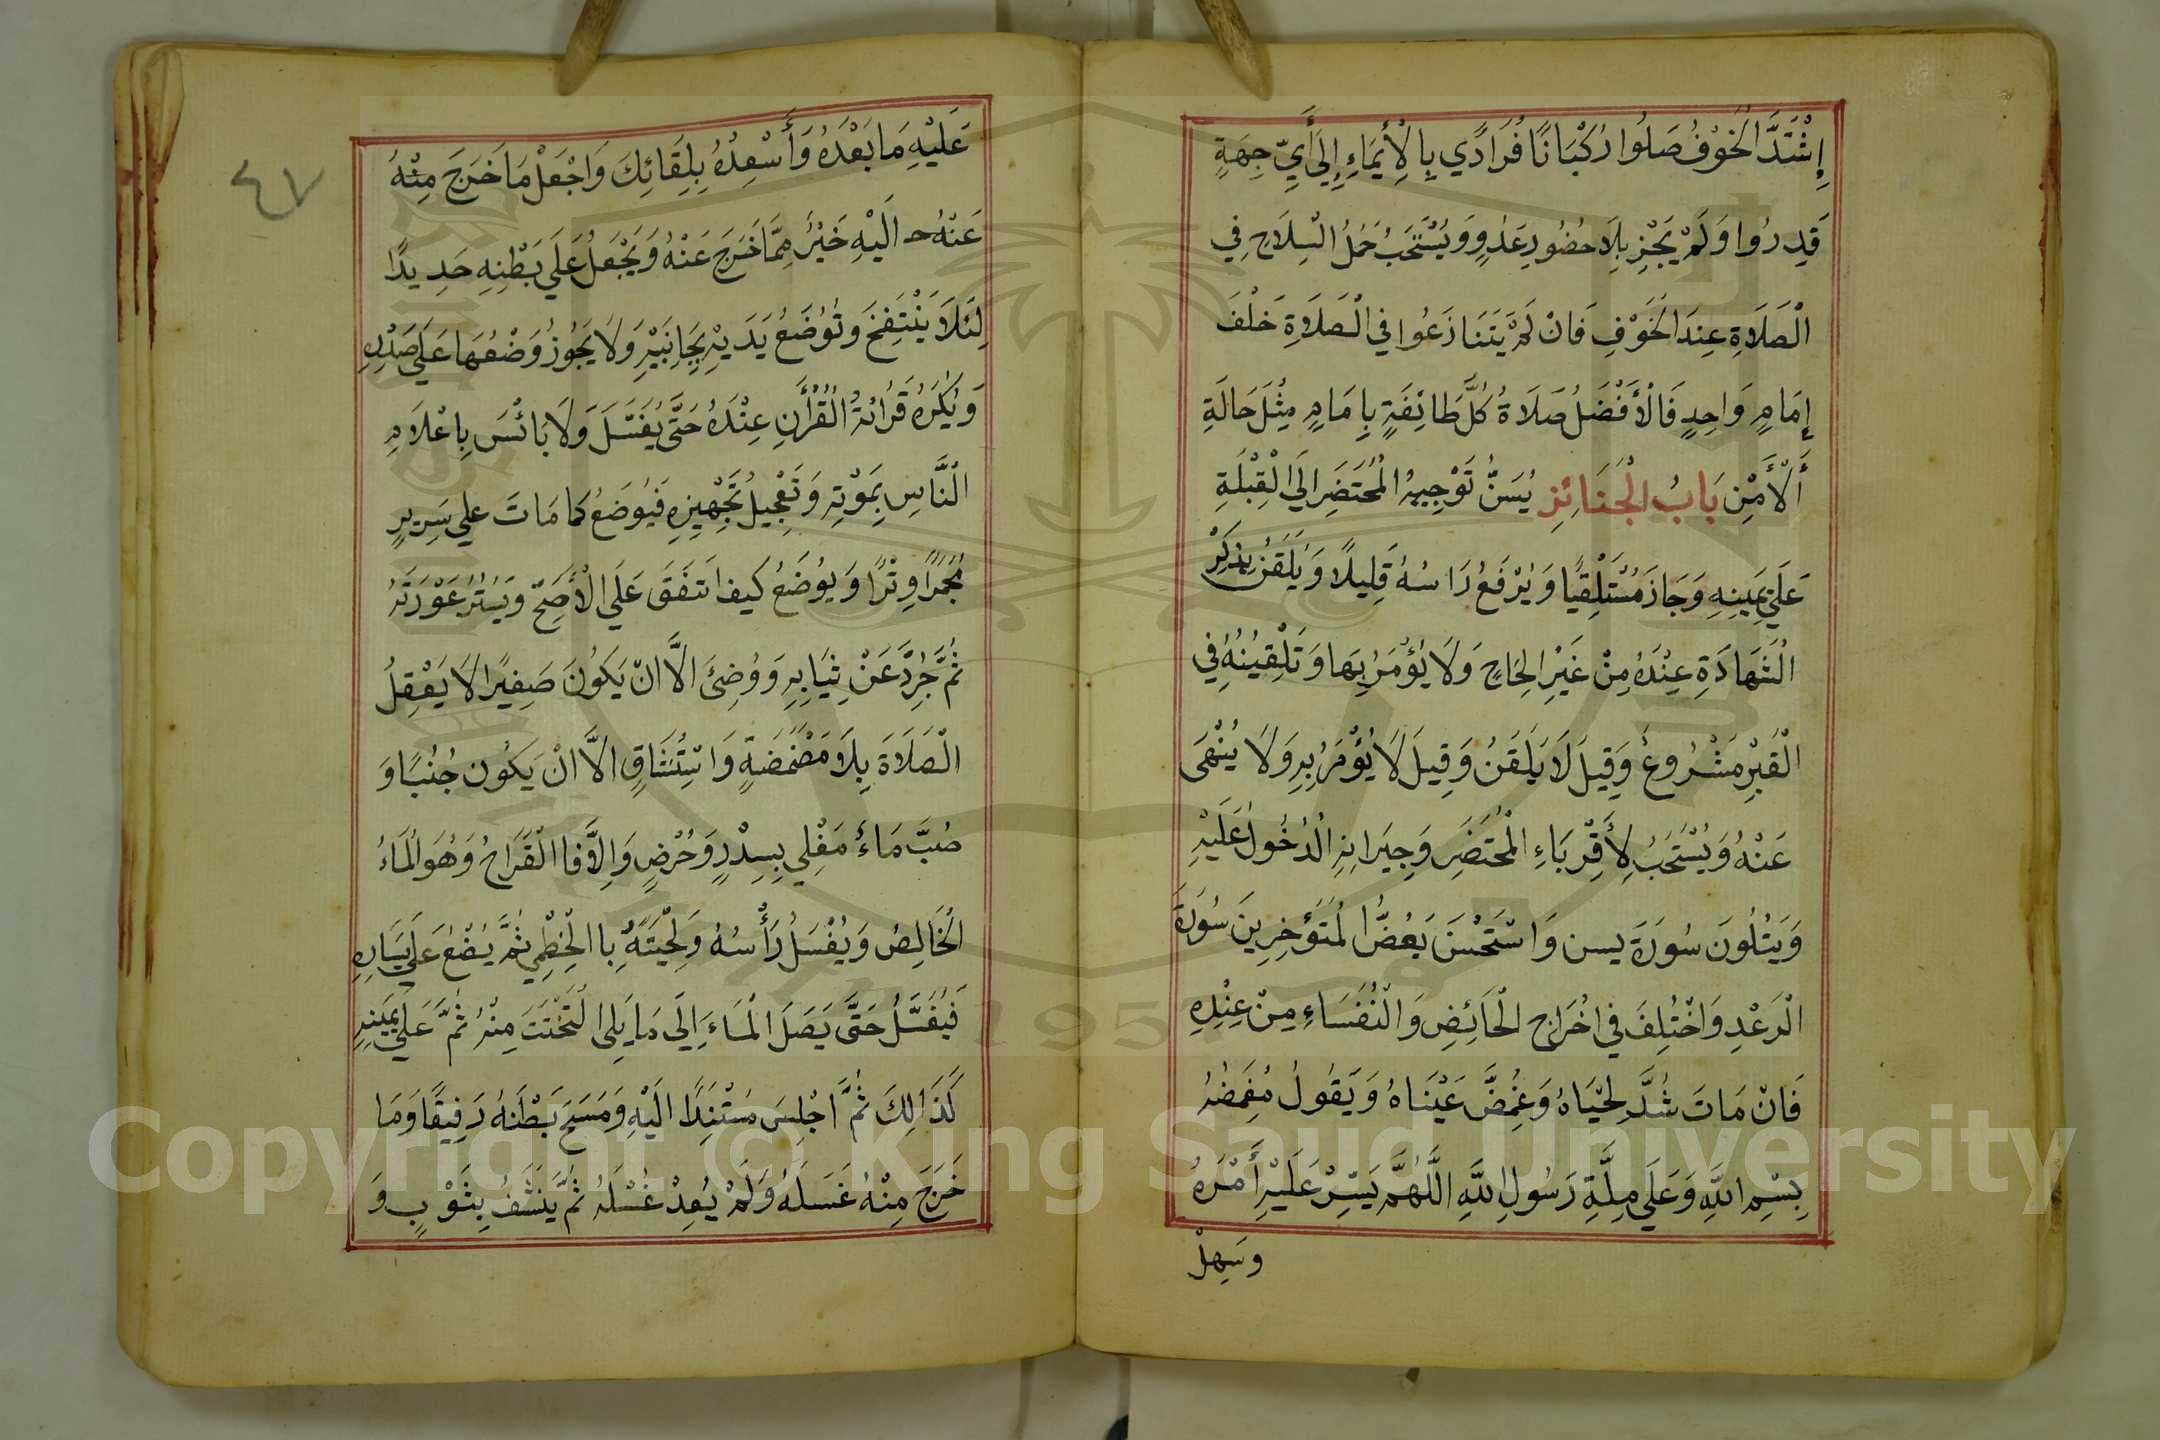 إِشْتَدَّ الْخَوْفُ صَلُوا رُكْبَانًا فُرَادًي بِالْأِيْمَاءِ إِلَي أَيِّ جِهَةٍ
قَدِرُوا وَلَمْ يَجْزِ بِلَا حضُورِ عَدُوٍ وَيُسْتَحَبُ حَمْلُ السِّلَاحِ فِي
الْصَلَاةِ عِنْدَ الْخَوْفِ فَانْ لَمْ يَتَنَازَعُوا في الْصَلَاةِ خَلْفَ
إِمَامٍ وَاحِدٍ فَالْأَفْضَلُ صَلَاةُ كُلِّ طَائِفَةٍ بِإِمَامٍ مِثْلَ حَالَةِ
أَلْأَمْنِ بَابُ الْجَنَائِزِ يُسَنُّ تَوْجِيهُ الْمُحْتَضَرِ اِلَي الْقِبْلَةِ
عَلَي يَمِينِهِ وَجَازَ مُسْتَلْقِيًا وَيُرْفَعُ رَاسُهُ قَلِيلًا وَيُلَقَنُ بِذِكْرِ
الْشَهَادَةِ عِنْدَهُ مِنْ غَيْرِ اِلْحَاحٍ وَلَا يُؤْمَرُ بِهَا وَتَلْقِينُهُ فِي
الْقَبْرِ مَشْرُوعُ وَقِيلَ لَا يُلَقَنُ وَقِيلَ لَا يُؤْمَرُ بِهِ وَلَا يُنْهَى
عَنْهُ وَيُسْتَحَبُ لِأَقْرِبَاءِ الْمُحْتَضَرِ وَجِيَرانِهِ الْدُخُولُ عَلَيْهِ
وَيَتْلُونَ سُورَةَ يسن وَاسْتَحْسَنَ بَعْضُ الْمُتَؤَخِرِينَ سُورَةَ
الْرَعْدِ وَاخْتُلِفَ في اخْرَاجِ الْحَائِضِ وَالْنُفَسَاءِ مِنْ عِنْدِهِ
فَانْ مَاتَ شُدَّ لِحْيَاهُ وَغُمِضَّ عَيْنَاهُ وَيَقُولُ مُغَمِضُهُ
بِسْمِ اللّهِ وَعَلَي مِلَّةِ رَسُولِ اللّهِ الَّلهُمَّ يَسِّرْ عَلَيْهِ أَمْرَهُ
وسَهِلْ
٤٧
عَلَيْهِ مَا بَعْدَهُ وَأَسْعِدْهُ بِلِقَائِكَ وَاجْعَلْ مَا خَرَجَ مِنْهُ
عَنْهُ اَلَيْهِ خَيْرُ مِمَّا خَرَجَ عَنْهُ وَيُجْعَلُ عَلَي بَطْنِهِ حَدِيدًا
لِئَلَا يَنْتَفِخَ وَتُوْضَعُ يَدَيْهِ بِجَانِبَيْهِ وَلَا يَجُوزُ وَضْعُهَا عَلَي صَدْرِهِ
وَيُكْرَهُ قَرْائَةُ الْقُرْأَنِ عِنْدَهُ حَتَّى يُغَسَّلَ وَلَا بَائْسَ بِاِعْلَامِ
الْنَّاسِ بِمَوْتِهِ وَتَعْجِيلُ تَجْهِيزِهِ فَيُوضَعُ كَمَا مَاتَ علي سَرِيرٍ
مُجَمَّرًا وِتْرًا وَيوُضَعُ كيف اتفَقَ عَلَي الْأَصَحِّ وَيُسْتَرُ عَوْرَتَهُ
ثُمَّ جُرِّدَ عَنْ ثِيَابِهِ وَوُضِئَ الَّا انْ يَكُونَ صَغِيرًا لَا يَعْقِلُ
الْصَلَاةَ بِلَا مَضْمَضَةٍ وَاسْتِنْشَاقٍ الَّا انْ يَكُون جُنُبًا وَ
صُبَّ مَاءُ مَغْلِي بِسِدْرٍ وَحُرْضٍ وَاِلَّا فَاالْقَرَاحُ وَهُوَ الْمَاءُ
الْخَالِصُ وَيُغْسَلُ رَأْسُهُ وَلِحْيَتَهُ بِاالْخِطْمِي ثُمَّ يُضْجَعُ عَلَي يَسَارِهِ
فَيُغَسَّلُ حَتَّى يَصَلَ الْمَاءَ اِلَي مَا يَلِى الْتَخْتَ مِنْهُ ثُمَّ عَلَي يَمِينِهِ
كَذَالِكَ ثُمَّ اجْلِسَ مُسْتَنِدًا الَيْهِ وَمَسَحَ بَطْنَهُ رَفِيقًا وَمَا
خَرَجَ مِنْهُ غَسَلَهُ وَلَمْ يُعِدْ غُسْلَهُ ثُمَّ يَنَشَّفُ بِثَوْبٍ وَ
Copyright © King Saud University
1957